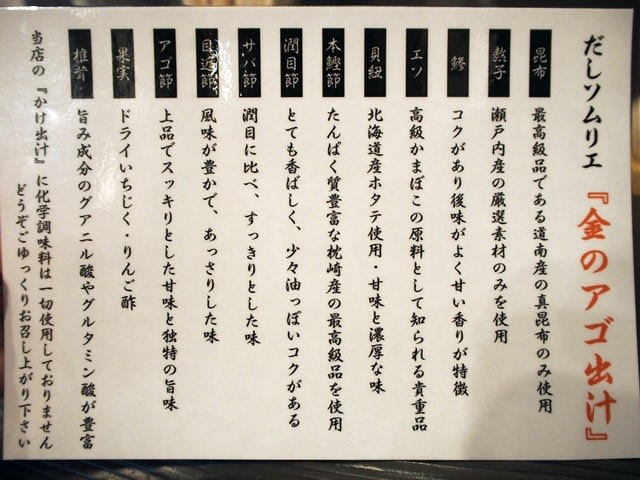 だしソムリエ『金のアゴ出汁』
昆布 最高級品である道南産の真昆布のみ使用
熬子 瀬戸内産の厳選素材のみを使用
鯵 コクがあり後味がよく甘い香りが特徴
エソ 高級かまぼこの原料として知られる貴重品
貝紐 北海道産ホタテ使用・甘味と濃厚な味
本鰹節 たんぱく質豊富な枕崎産の最高級品を使用
潤目節 とても香ばしく、少々油っぽいコクがある
サバ節 潤目に比べ、すっきりとした味
目近節 風味が豊かで、あっさりした味
アゴ節 上品でスッキリとした甘味と独特の旨味
果実 ドライいちじく・りんご酢
椎茸 旨み成分のグアニル酸やグルタミン酸が豊富
当店の『かけ出汁』に化学調味料は一切使用しておりません
どうぞごゆっくりお召し上がり下さい